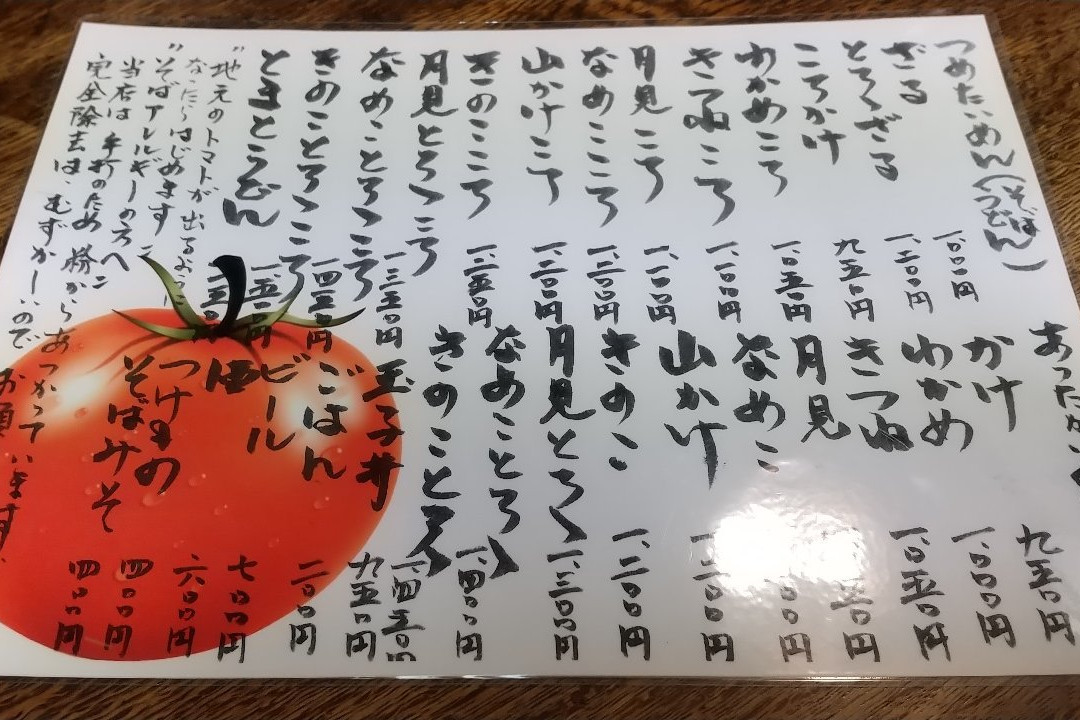 つめたいめん(そば うどん)
ざる 一、〇〇〇円
とろろざる 一、二〇〇円
ころかけ 九五〇円
わかめころ 一、〇五〇円
きつねころ 一、一〇〇円
月見ころ 一、一〇〇円
なめこころ 一、二〇〇円
山かけころ 一、二〇〇円
きのこころ 一、二五〇円
月見とろろころ 一、三五〇円
なめことろろころ 一、四五〇円
きのことろろころ 一、五〇〇円
とまとうどん
"地元のトマトが出るように
なったらはじめます
"そばアレルギーの方へ"
当店は手打のため粉からあつかって
完全除去は、むずかしいので お願いします
あったかい
かけ 九五〇円
わかめ 一、〇〇〇円
きつね 一、〇五〇円
月見
なめこ
山かけ 一、二〇〇円
きのこ 一、二〇〇円
月見とろろ 一、三〇〇円
なめことろろ 一、四〇〇円
きのことろろ 一、四五〇円
玉子丼 九五〇円
ごはん 二〇〇円
ビール 七〇〇円
酒 六〇〇円
つけもの 四〇〇円
そばみそ 四〇〇円